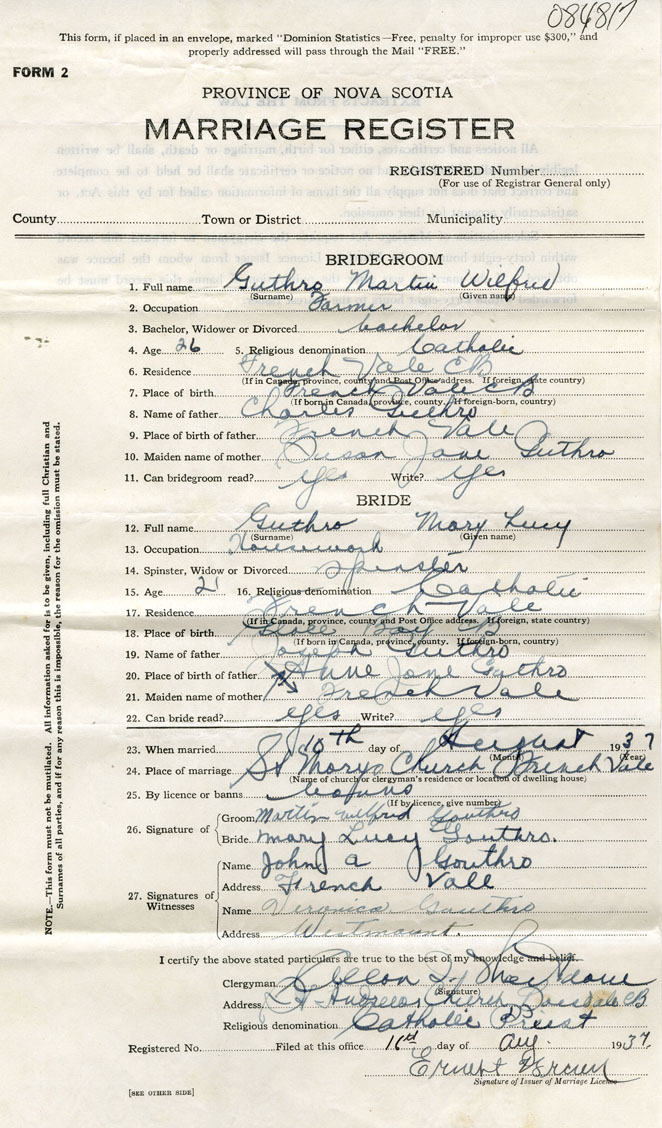 084817
This form, if placed in an envelope, marked "Dominion Statistics—Free, penalty for improper use $300," and
properly addressed will pass through the Mail "FREE."
FORM 2
PROVINCE OF NOVA SCOTIA
MARRIAGE REGISTER
REGISTERED Number
(For use of Registrar General only)
County Town or District Municipality
BRIDEGROOM
1. Full name Guthro Martin Wilfred
(Surname) (Given name)
2. Occupation Farmer
3. Bachelor, Widower or Divorced bachelor
4. Age 26 5. Religious denomination Catholic
6. Residence French Vale CB
(If in Canada, province, county and Post Office address. If foreign, state country)
7. Place of birth French Vale CB
(If born in Canada, province, county. If foreign-born, country)
8. Name of father Charles Guthro
9. Place of birth of father French Vale
10. Maiden name of mother Susan Jane Guthro
11. Can bridegroom read? yes Write? yes
BRIDE
12. Full name Guthro Mary Lucy
(Surname) (Given name)
13. Occupation Housework
14. Spinster, Widow or Divorced spinster
15. Age 21 16. Religious denomination Catholic
17. Residence French Vale
(If in Canada, province, county and Post Office address. If foreign, state country)
18. Place of birth Glace Bay CB
(If born in Canada, province, county. If foreign-born, country)
19. Name of father Joseph Guthro
20. Place of birth of father Anne Jane Guthro
21. Maiden name of mother French Vale
22. Can bride read? yes Write? yes
23. When married 10th day of August 1937
(Month) (Year)
24. Place of marriage St Marys Church French Vale
(Name of church or clergyman's residence or location of dwelling house)
25. By licence or banns banns
(If by licence, give number)
26. Signature of Groom Martin Wilfred Gouthro
Bride Mary Lucy Gouthro.
27. Signatures of Witnesses
Name John A Gouthro
Address French Vale
Name Veronica Gouthro
Address Westmount.
I certify the above stated particulars are true to the best of my knowledge and belief.
Clergyman
(Signature)
Address St Andrews Church Boisdale CB
Religious denomination Catholic Priest
Registered No. Filed at this office 16th day of Aug. 1937.
Ernest
Signature of Issuer of Marriage Licence
[SEE OTHER SIDE]
NOTE.—This form must not be mutilated. All information asked for is to be given, including full Christian and
Surnames of all parties, and if for any reason this is impossible, the reason for the omission must be stated.